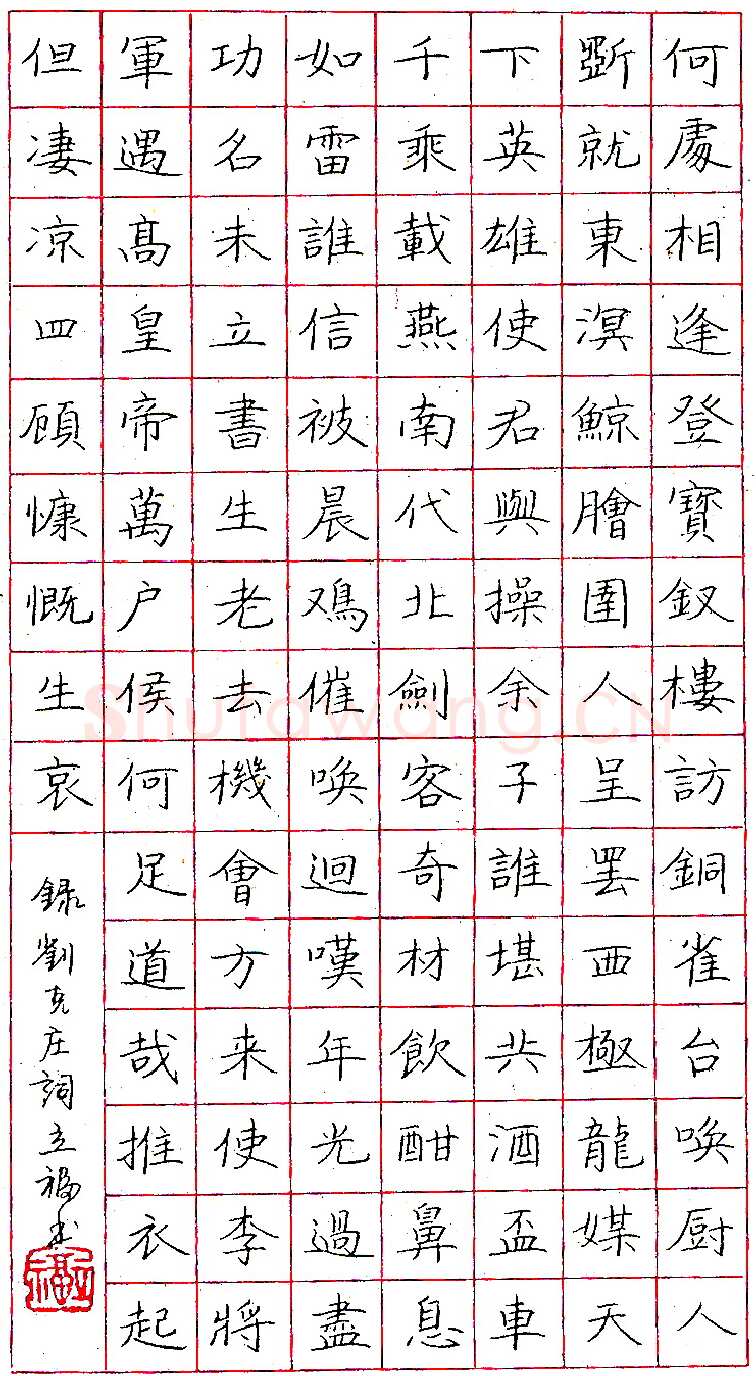 何處相逢登寶釵樓訪銅雀台唤厨人
斲就東溟鯨膾圉人呈罷西極龍媒天
下英雄使君與操余子誰堪共酒盃車
千乘載燕南代北劍客奇材飲酣鼻息
如雷誰信被晨鳮催唤迴嘆年光過盡
功名未立書生老去機會方来使李將
軍遇高皇帝萬户侯何足道哉推衣起
但凄凉四顧慷慨生哀
録劉克庄詞立福书
Shufawang.CN